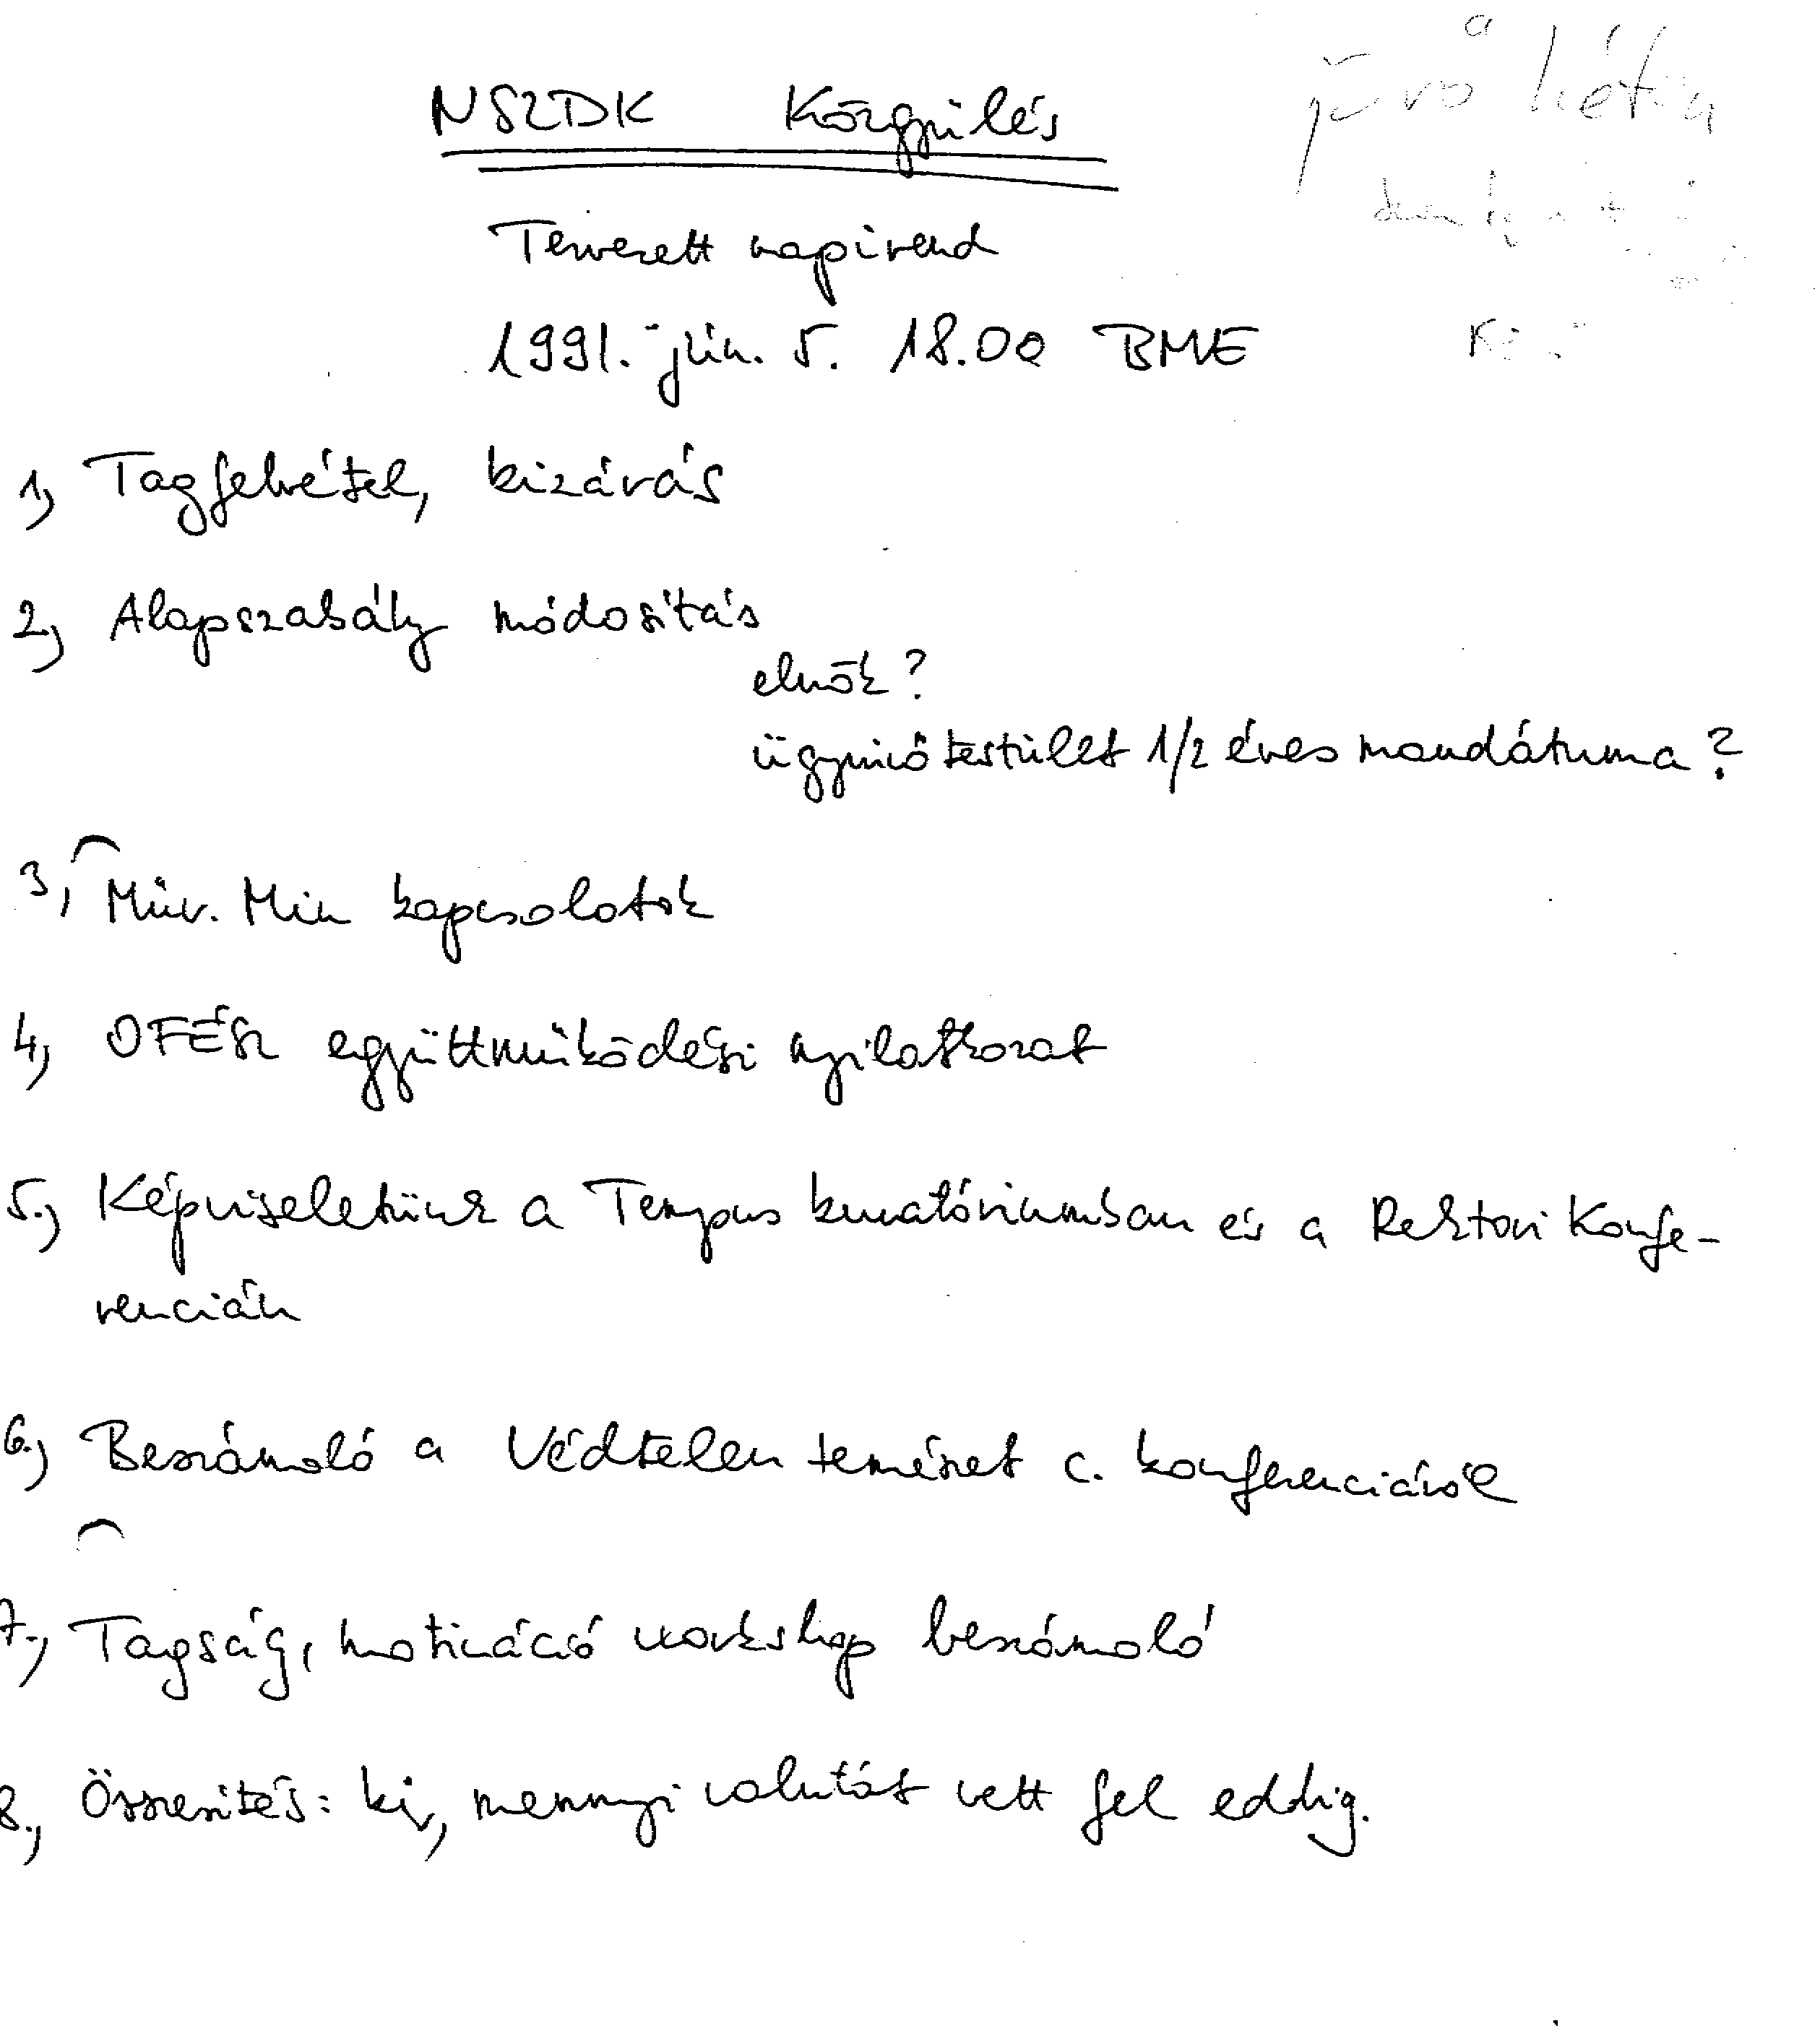 NSZDK Közgyülés
a
jövő hét
Tervezett napirend
1991. jún. 5. 18.00 BME
1, Tagfelvétel, kizárás
2, Alapszabály módosítás
elnök?
ügyvivőtestület 1/2 éves mandátuma?
3, Műv. Min kapcsolatok
4, OFÉSZ együttműködési nyilatkozat
5., Képviseletünk a Tempus kuratóriumban és a Rektori Konfe-
rencián
6., Beszámoló a Védtelen természet c. konferenciáról
7., Tagság, motiváció workshop beszámoló
8., Összesítés: ki, mennyi valutát vett fel eddig.